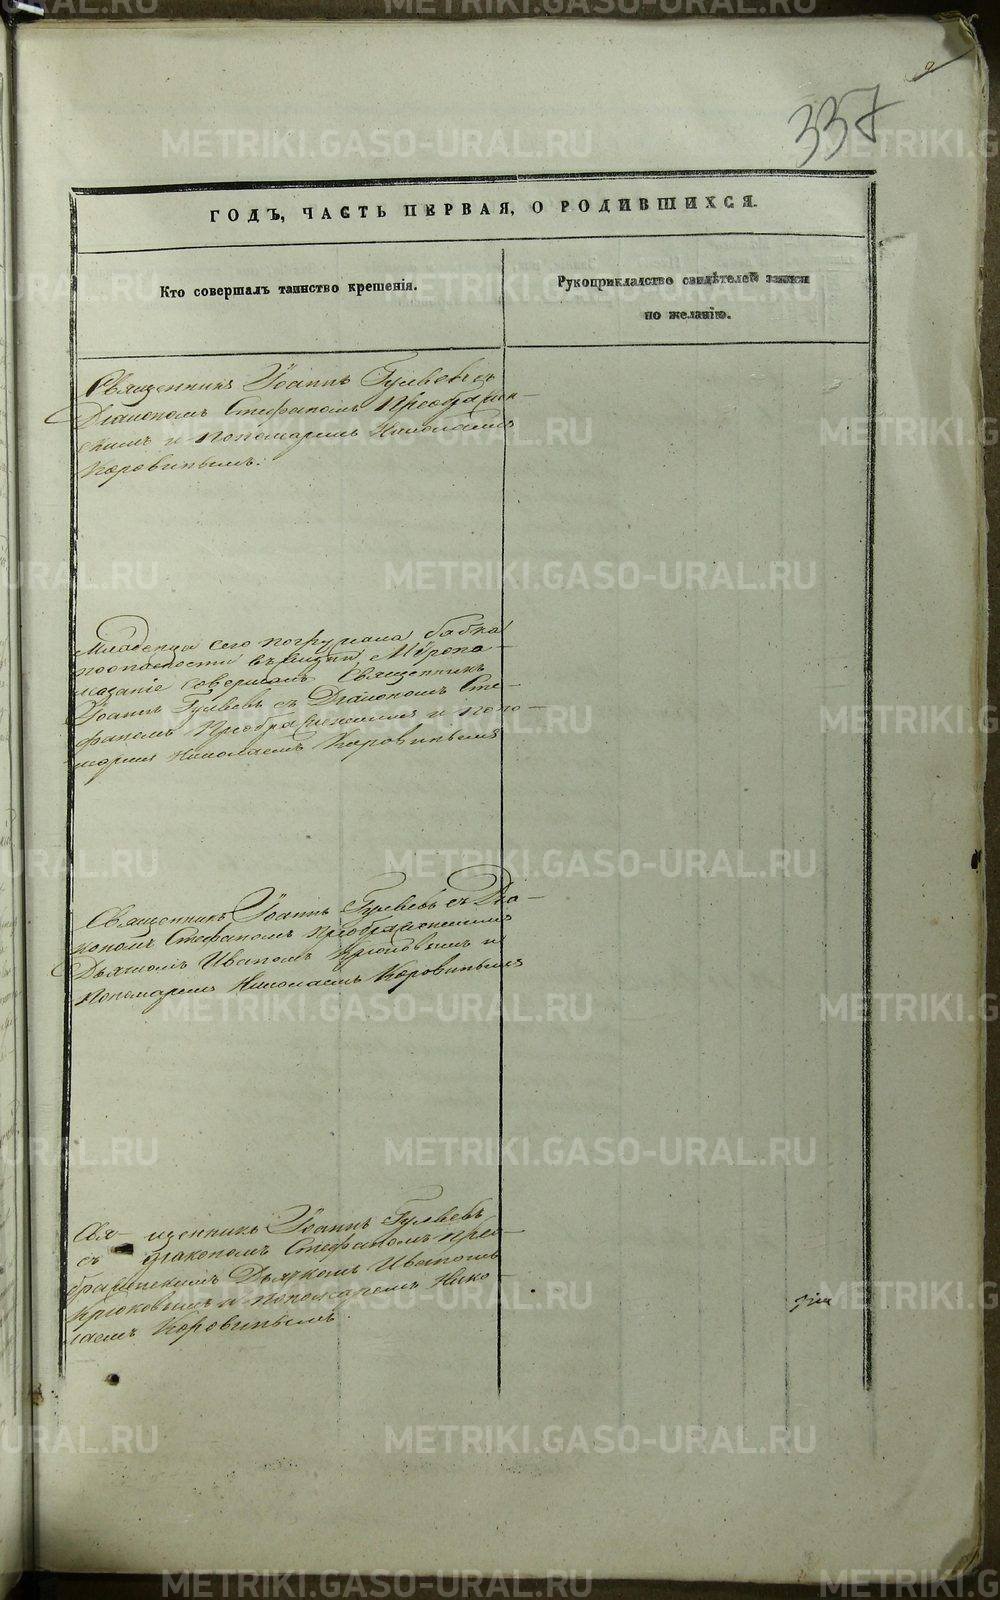 337
ГОДЪ, ЧАСТЬ ПЕРВАЯ, О РОДИВШИХСЯ.
Кто совершалъ таинство крещенія.
Рукоприкладство свидѣтелей записи
по желанію.
Священникъ Іоаннъ Гуляевъ съ
Діакономъ Стефаномъ Преображен-
скимъ и Пономаремъ Николаемъ
Коровинымъ.
Младенца сего погружала бабка
поопасности въ жизни, Мѵропо-
мазаніе совершалъ Священникъ
Іоаннъ Гуляевъ съ Діакономъ Сте-
фаномъ Преображенскимъ и поно-
марем Николаемъ Коровинымъ
Священникъ Іоаннъ Гуляевъ съ Діа-
кономъ Стефаномъ Преображенскимъ
Дьячкомъ Иваномъ Крюковымъ и
Пономаремъ Николаемъ Коровинымъ
Свя- щенникъ Іоаннъ Гуляевъ
съ діакономъ Стефаномъ Прео-
браженскимъ Дьячкомъ Иваномъ
Крюковымъ и пономаремъ Нико-
лаемъ Коровинымъ.
METRIKI.GASO-URAL.RU